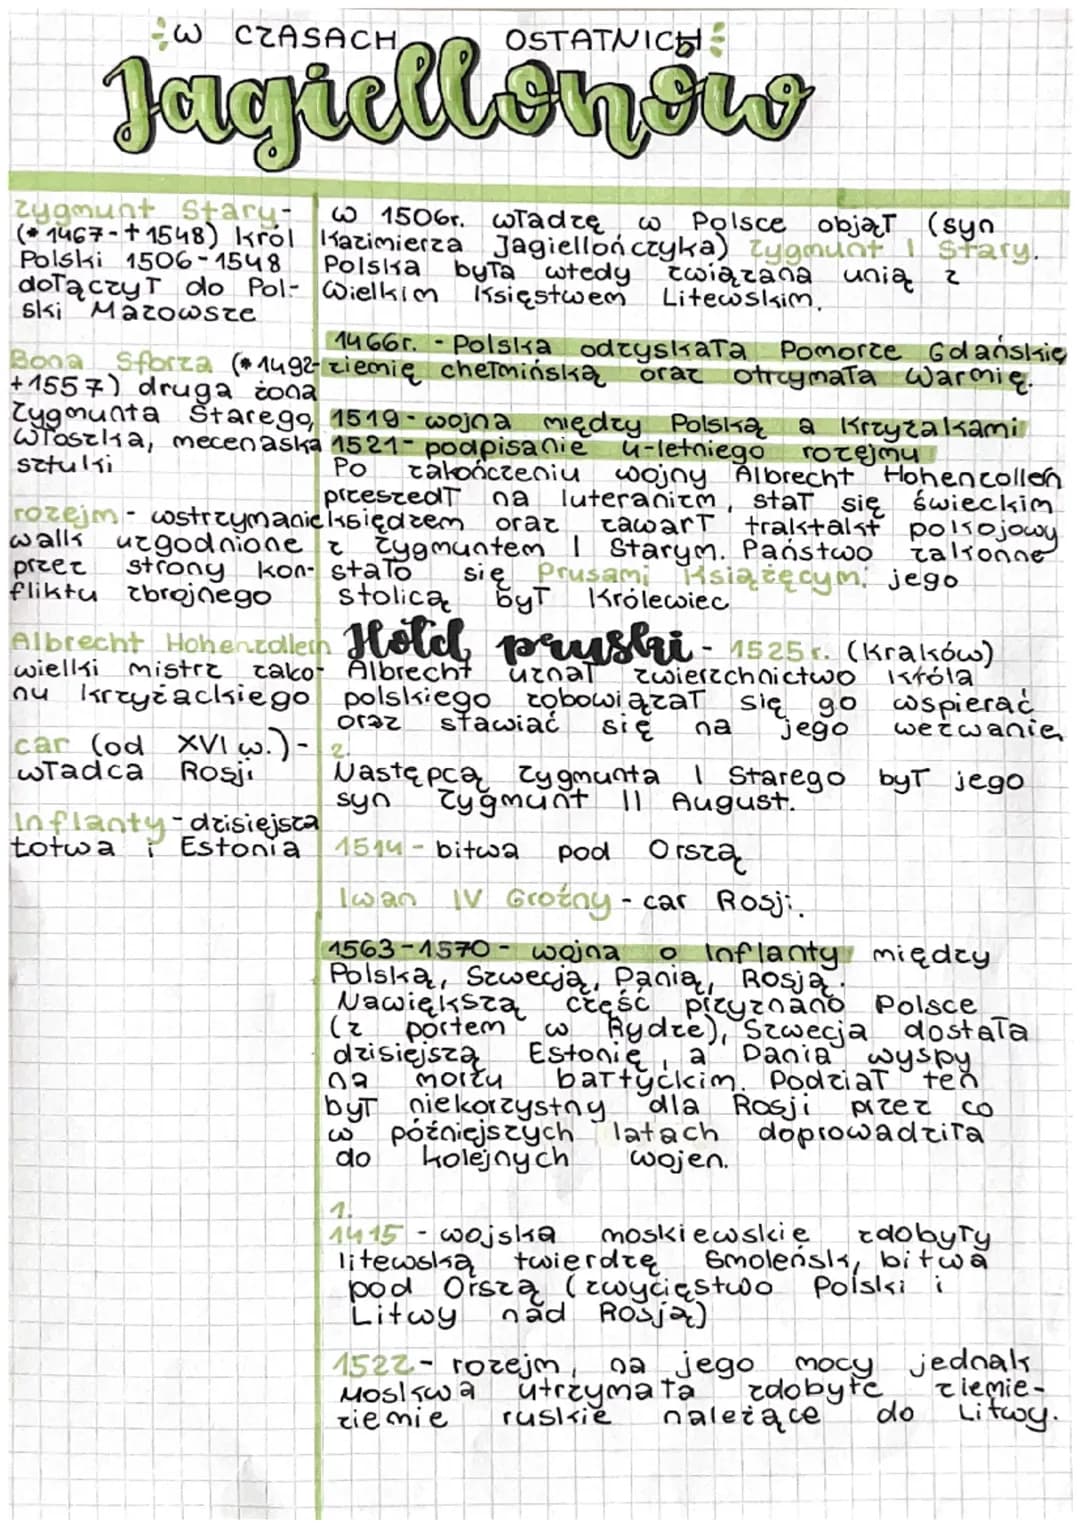 W CZASACH OSTATNICH
Jagiellonów
Zygmunt Stary-
(*1467-+1548) król
Polski 1506-1548
dołączył do Pol-
ski Mazowsze
Bona Sforza (*1492-
+1557) druga żona
Zygmunta Starego,
Włoszka, mecenaska
sztuki
rozejm - wstrzymanie
walk uzgodnione
przez strony kon-
fliktu zbrojnego
Albrecht Hohenzollern
wielki mistrz zako-
nu krzyżackiego
car (od XVI w.)-
władca Rosji
Inflanty - dzisiejsza
Łotwa i Estonia
w 1506r. władzę w Polsce objął (syn
Kazimierza Jagiellończyka) Zygmunt I Stary.
Polska była wtedy związana unią z
Wielkim Księstwem Litewskim.
1466r. - Polska odzyskała Pomorze Gdańskie
ziemię chełmińską oraz otrzymała Warmię.
1519 - wojna między Polską a Krzyżakami
1521 - podpisanie 4-letniego rozejmu
Po zakończeniu wojny Albrecht Hohenzollern
przeszedł na luteranizm, stał się świeckim
księdzem oraz zawarł traktakt pokojowy
z Zygmuntem I Starym. Państwo zakonne
stało się Prusami Książęcymi jego
stolicą był Królewiec
Hołd pruski - 1525r. (Kraków)
Albrecht uznał zwierzchnictwo króla
polskiego zobowiązał się go wspierać
oraz stawiać się na jego wezwanie
2.
Następcą Zygmunta I Starego był jego
syn Zygmunt II August.
1514 - bitwa pod Orszą
Iwan IV Groźny - car Rosji.
1563-1570 - wojna o Inflanty między
Polską, Szwecją, Danią, Rosją.
Nawiększą cześć przyznano Polsce
(z portem w Rydze), Szwecja dostała
dzisiejszą Estonię, a Dania wyspy
na morzu bałtyckim. Podział ten
był niekorzystny dla Rosji przez co
w późniejszych latach doprowadziła
do kolejnych wojen.
1.
1415 - wojska moskiewskie zdobyły
litewską twierdzę Smoleńsk, bitwa
pod Orszą (zwycięstwo Polski i
Litwy nad Rosją)
1522 - rozejm, na jego mocy jednak
Moskwa utrzymała zdobyte ziemie-
ziemie ruskie należące do Litwy.